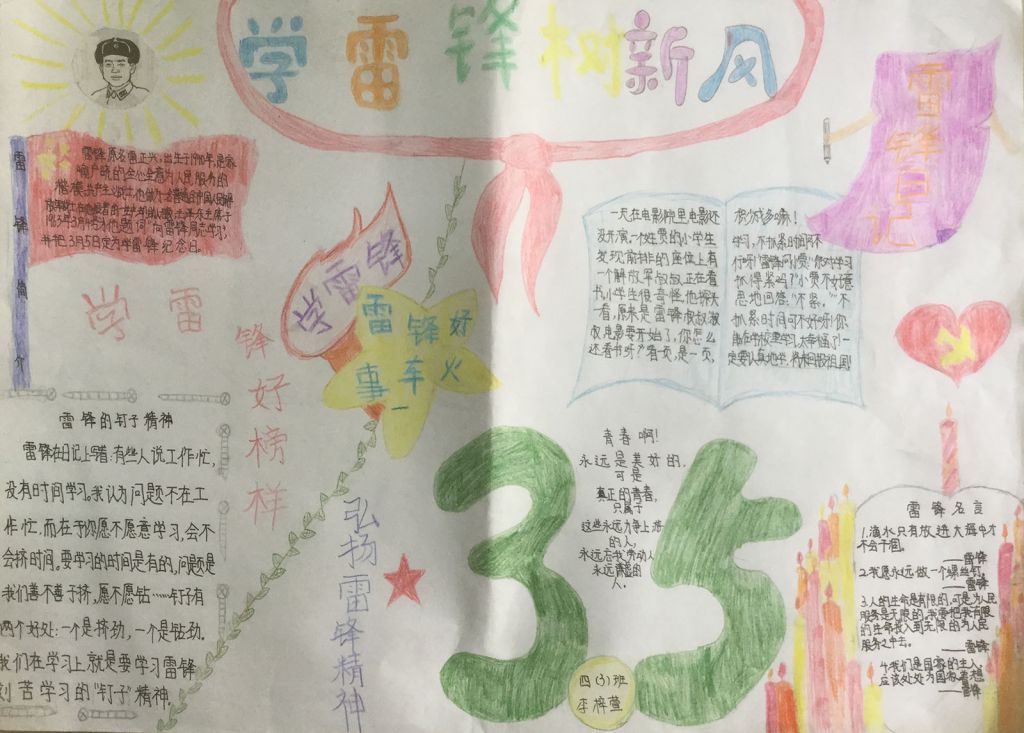 学雷锋树新风
雷锋简介
雷锋原名雷正兴,出生于1940年,是家
喻户晓的全心全意为人民服务的
楷模,共产主义战士
1963年3月
并把3月5日定为学雷锋纪念日。
学雷
锋好榜样
学雷锋
雷锋好
事车火
一
雷锋日记
一天在电影院里电影还
没开演。一姓贾的小学生
发现前排的座位上有
一个解放军叔叔正在看
书,小学生很奇怪,他探头
一看,原来是雷锋叔叔,叔
叔电影要开始了,你怎么
还看书呀?看一页,是一页,
积少成多嘛!
学习,不抓紧时间不
行呀!雷锋问小贾:你对学习
抓得紧吗?"小贾不好意
思地回答:"不紧,""不
抓紧时间可不好呀!你
雷锋的钉子精神
雷锋在日记上写着:有些人说工作忙,
没有时间学习。我认为问题不在工
作忙,而在于你愿不愿意学习,会不
会挤时间。要学习的时间是有的,问题是
我们善不善于挤,愿不愿钻……钉子有
两个好处:一个是挤劲,一个是钻劲。
我们在学习上就是要学习雷锋
刻苦学习的"钉子"精神。
弘扬雷锋精神
3.5
青春啊!
永远是美好的.
可是
真正的青春,
只属于
这些永远力争上游
的人,
永远忘我劳动人
永远谦虚的
人.
四(3)班
李梓萱
雷锋名言
1.滴水只有放进大海中才
不会干涸。
——雷锋
2.我愿永远做一个螺丝钉.
——雷锋
3.人的生命是有限的,可是为人民
服务是无限的。我要把我有限
的生命投入到无限的为人民
服务之中去。
——雷锋
4.我们是国家的主人,
应该处处为国家着想
——雷锋